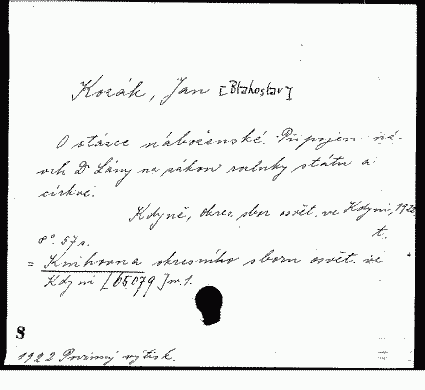 Kozák, Jan [Blahoslav]
O otázce náboženské. Připojen ná-
vrh Dr Lány na zákon rozluky státu a
církví.
Kdyně, okres. sbor osvět. ve Kdyni, 1920
t.
8°. 57 s.
= Knihovna okresního sboru osvět. ve
Kdyni [65079] sv. 1.
8
1922 Povinný výtisk.